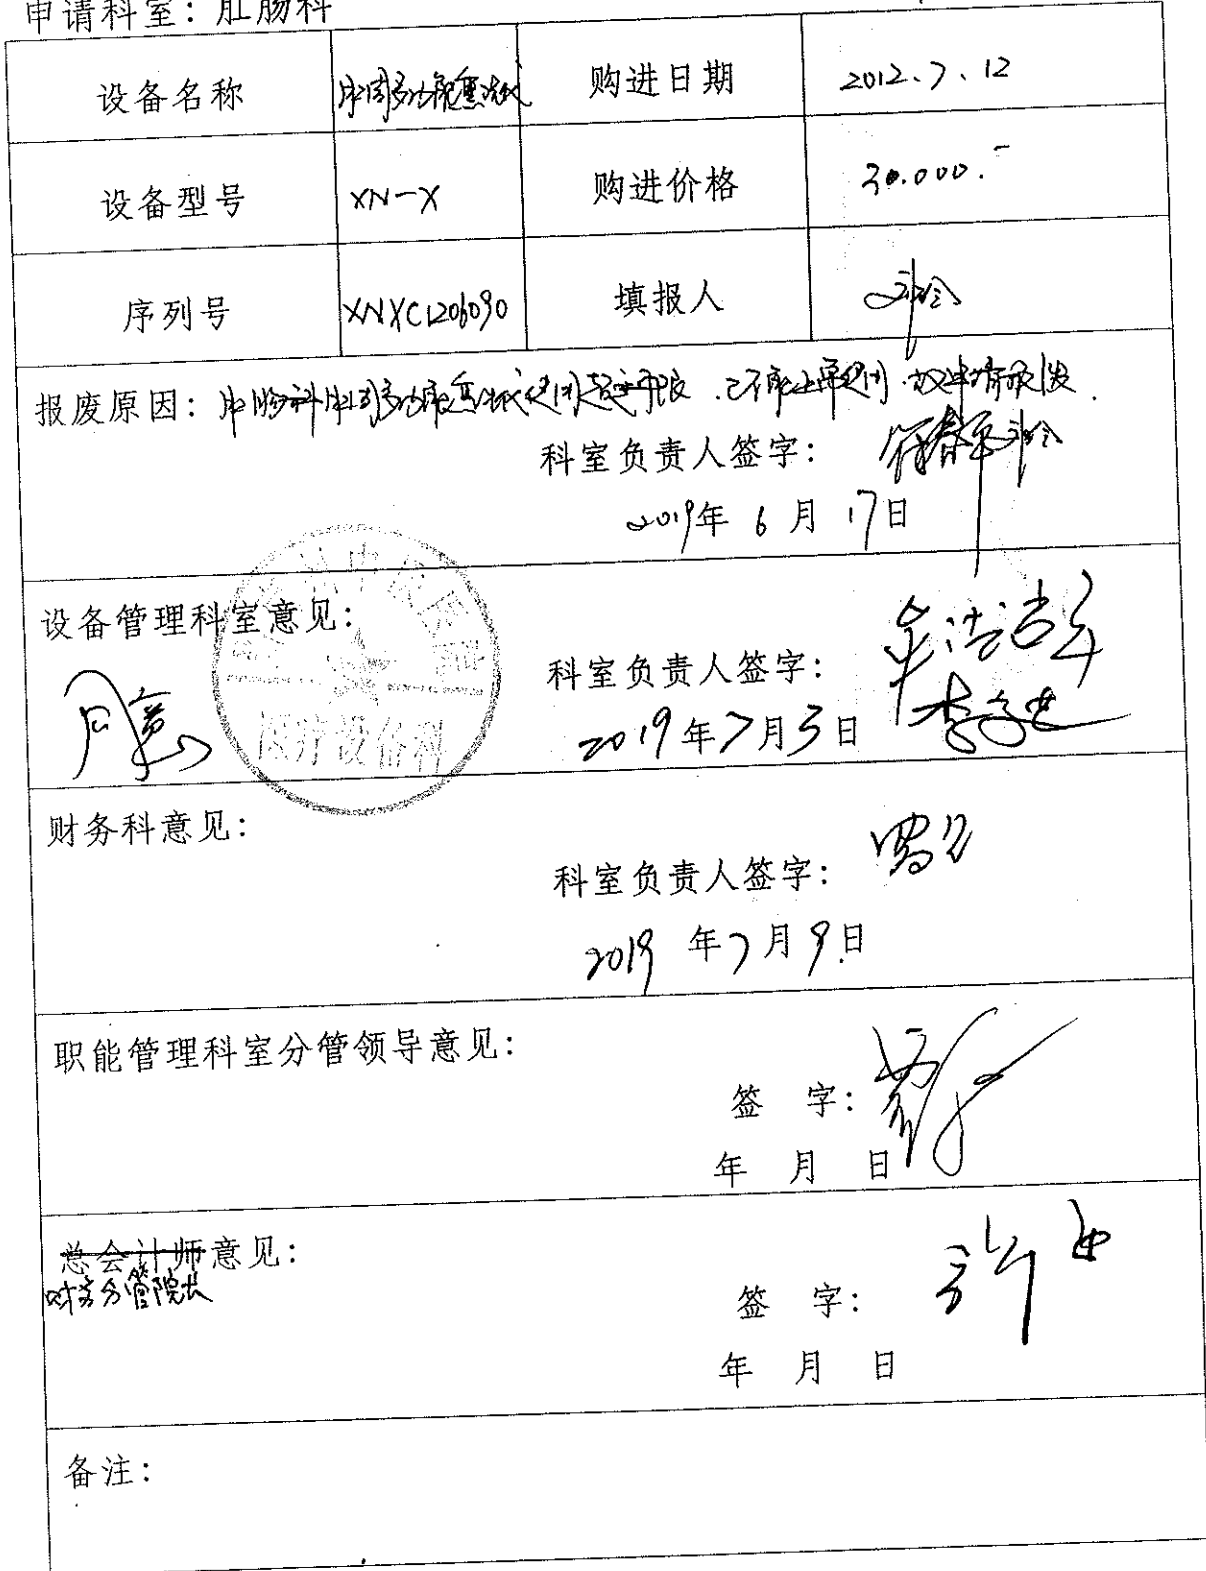 申请科室：肛肠科
设备名称 肛周多功能熏洗仪 购进日期 2012.7.12
设备型号 XN-X 购进价格 30.000.-
序列号 XNXC1206090 填报人
报废原因：肛肠科肛周多功能熏洗仪使用 已不能正常使用 故申请报废.
科室负责人签字：
2019年 6 月 17日
设备管理科室意见：
科室负责人签字：
同意
2019年7月3日
医疗设备科
财务科意见：
科室负责人签字：
2019 年 7 月 9 日
职能管理科室分管领导意见：
签 字：
年 月 日
总会计师意见：
财务分管院长
签 字：
年 月 日
备注：